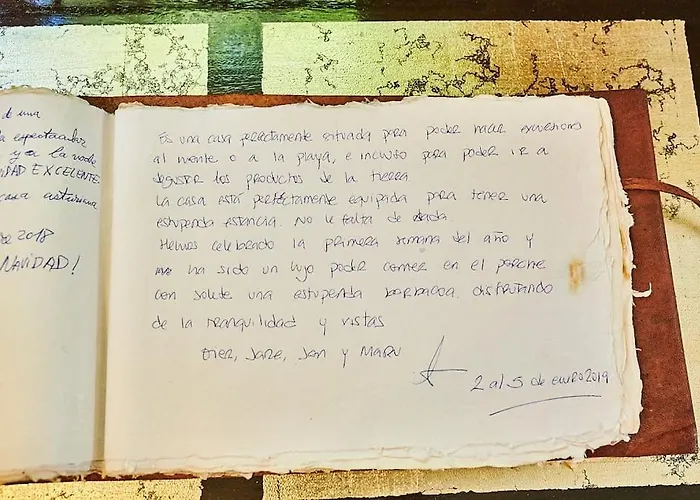 de una
espectacular
y a la vade
DAD EXCELENTE
casa asturiana
2018
NAVIDAD!
Es una casa perfectamente situada para poder hacer excursiones
al monte o a la playa, e incluso para poder ir a
degustar los productos de la tierra.
La casa está perfectamente equipada para tener una
estupenda estancia. No le falta de nada.
Hemos celebrado la primera semana del año y
ha sido un lujo poder comer en el porche
con solete una estupenda barbacoa disfrutando
de la tranquilidad y vistas
Eider, Jare, Jon y Maru
2 al 5 de enero 2019